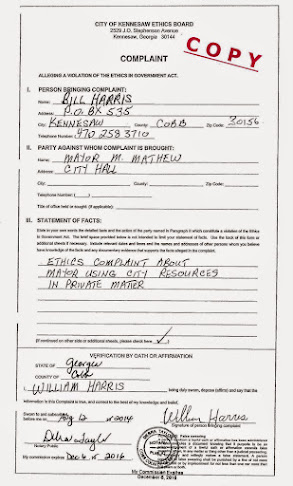 CITY OF KENNESAW ETHICS BOARD
2529 J.O. Stephenson Avenue
Kennesaw, Georgia 30144
COPY
COMPLAINT
ALLEGING A VIOLATION OF THE ETHICS IN GOVERNMENT ACT.
I. PERSON BRINGING COMPLAINT:
Name: BILL HARRIS
Address: P.O. BX 535
City: KENNESAW County: COBB Zip Code: 30156
Telephone Number: 470 258 3710
II. PARTY AGAINST WHOM COMPLAINT IS BROUGHT:
Name: MAYOR M. MATHEW
Address: CITY HALL
City: County: Zip Code:
Telephone Number: ( )
Title of office held or sought (if applicable):
III. STATEMENT OF FACTS:
ETHICS COMPLAINT ABOUT
MAYOR USING CITY RESOURCES
IN PRIVATE MATTER
(If continued on other side or additional sheets, please check here ✓)
VERIFICATION BY OATH OR AFFIRMATION
STATE OF Georgia
COUNTY OF Cobb
WILLIAM HARRIS being duly sworn, depose (affirm) and say that the
information in this Complaint is true, and correct to the best of my knowledge and belief.
Sworn to and subscribed
before me Aug 12 2014
William Harris
Signature of person bringing complaint
Debra Taylor
Notary Public
My commission expires Dec 6 2016
False swearing
My Commission Expires
December 6, 2016